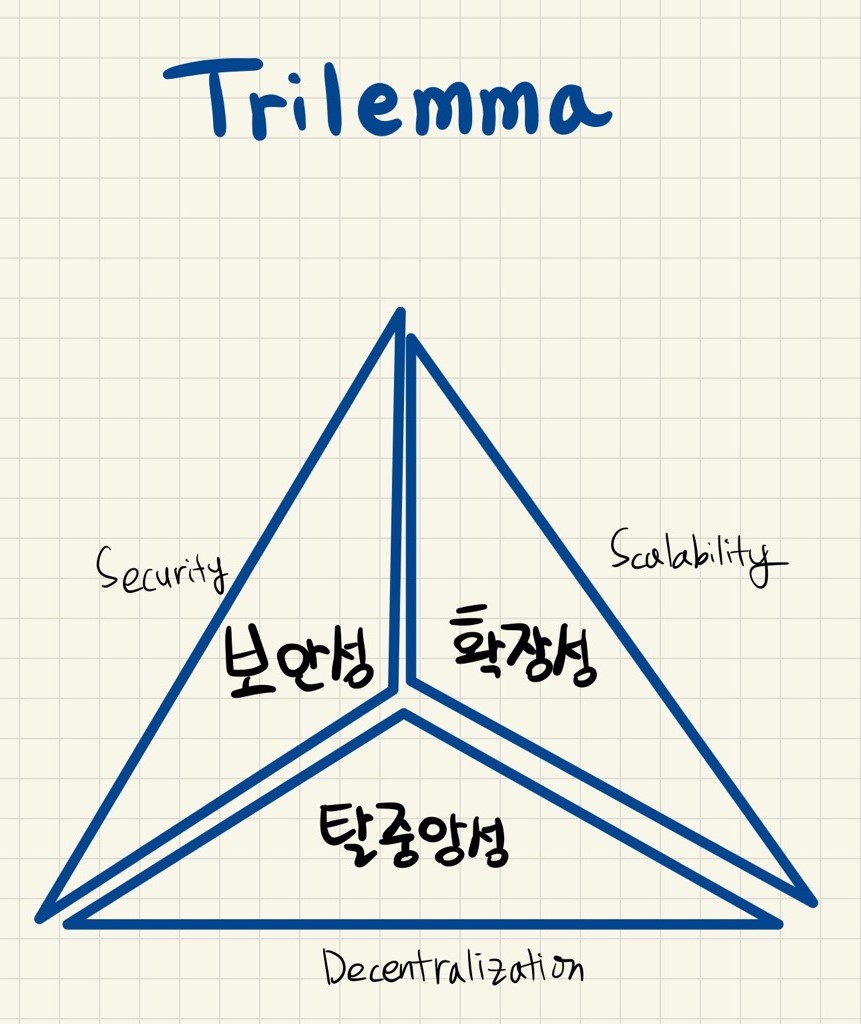 Trilemma
Security
Scalability
보안성
확장성
탈중앙성
Decentralization